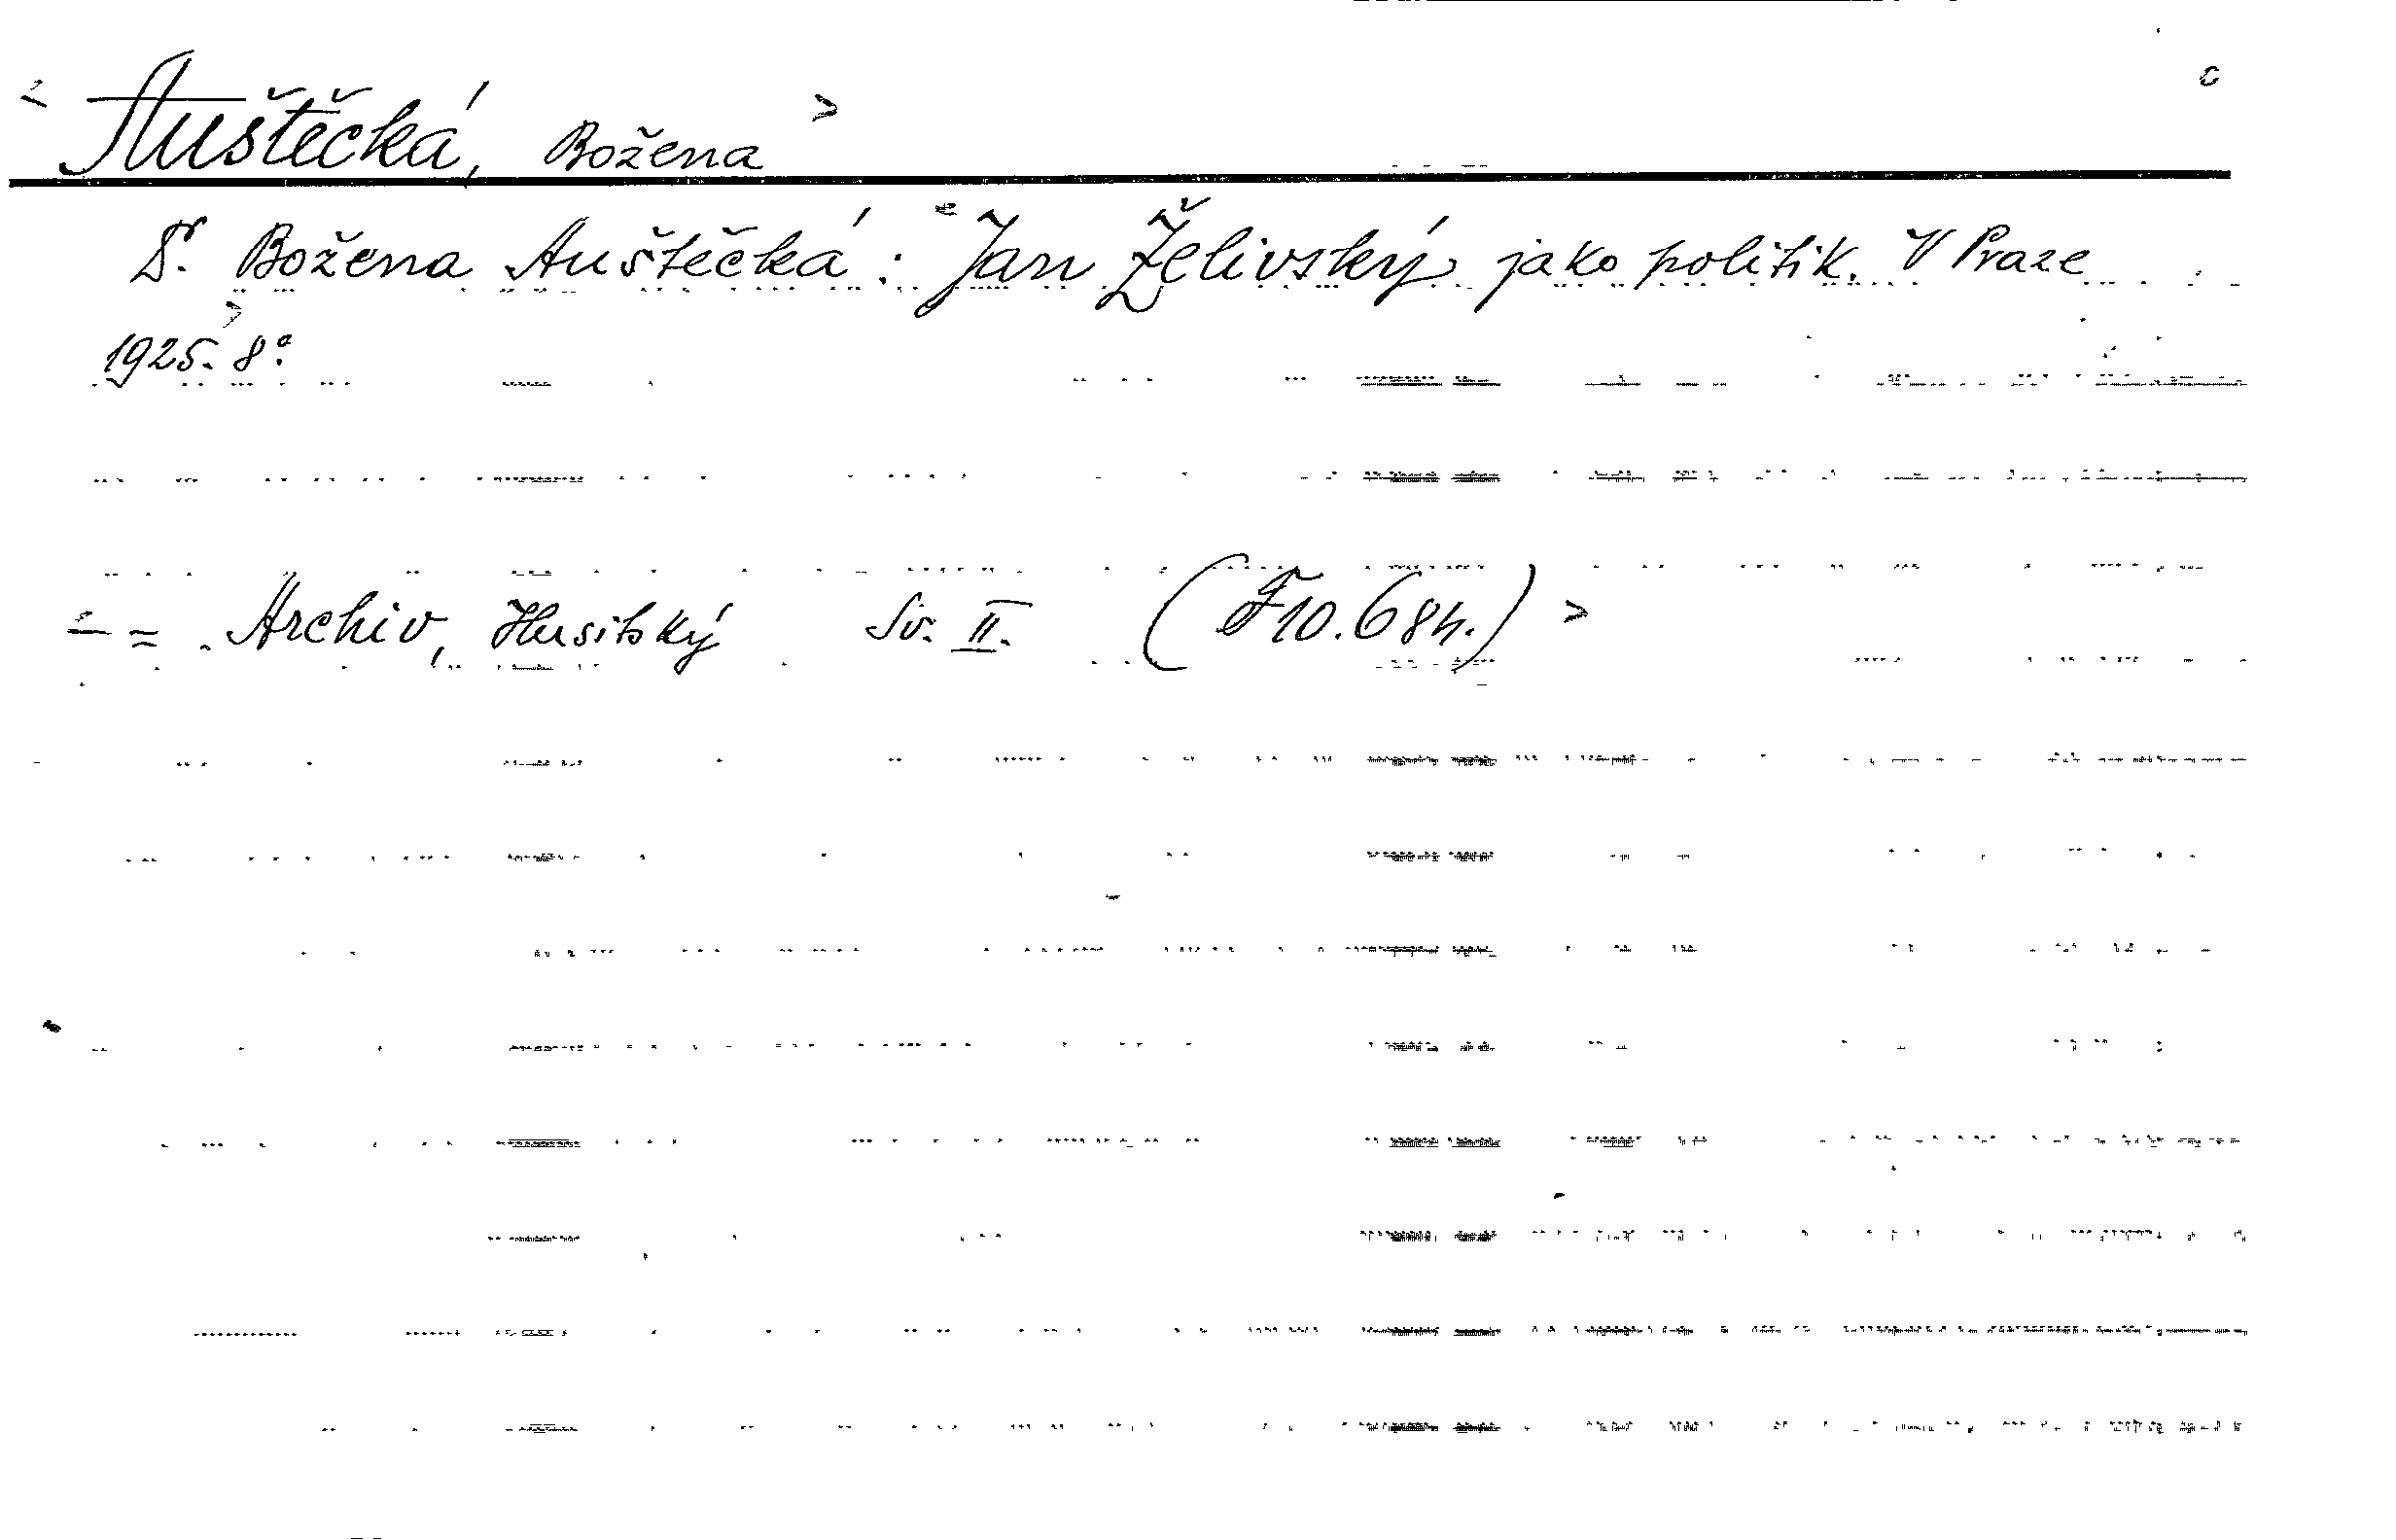 < Auštěčká, Božena >
Dr. Božena Auštěčká: Jan Želivský jako politik. V Praze
1925. 8°.
= Archiv, Husitský Sv. II. >